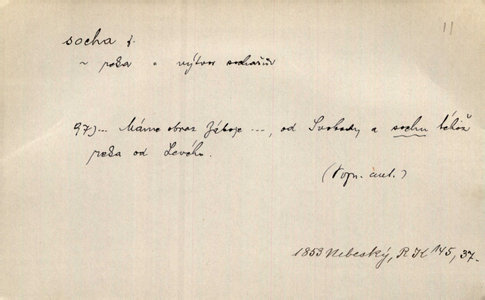 11
socha f.
~ reka = výtvor sochařův
97) ... Máme obraz Záboje ..., od Svobody a sochu téhož
reka od Levého.
(Vopr. aut.)
1853 Nebeský, R K 145, 37.